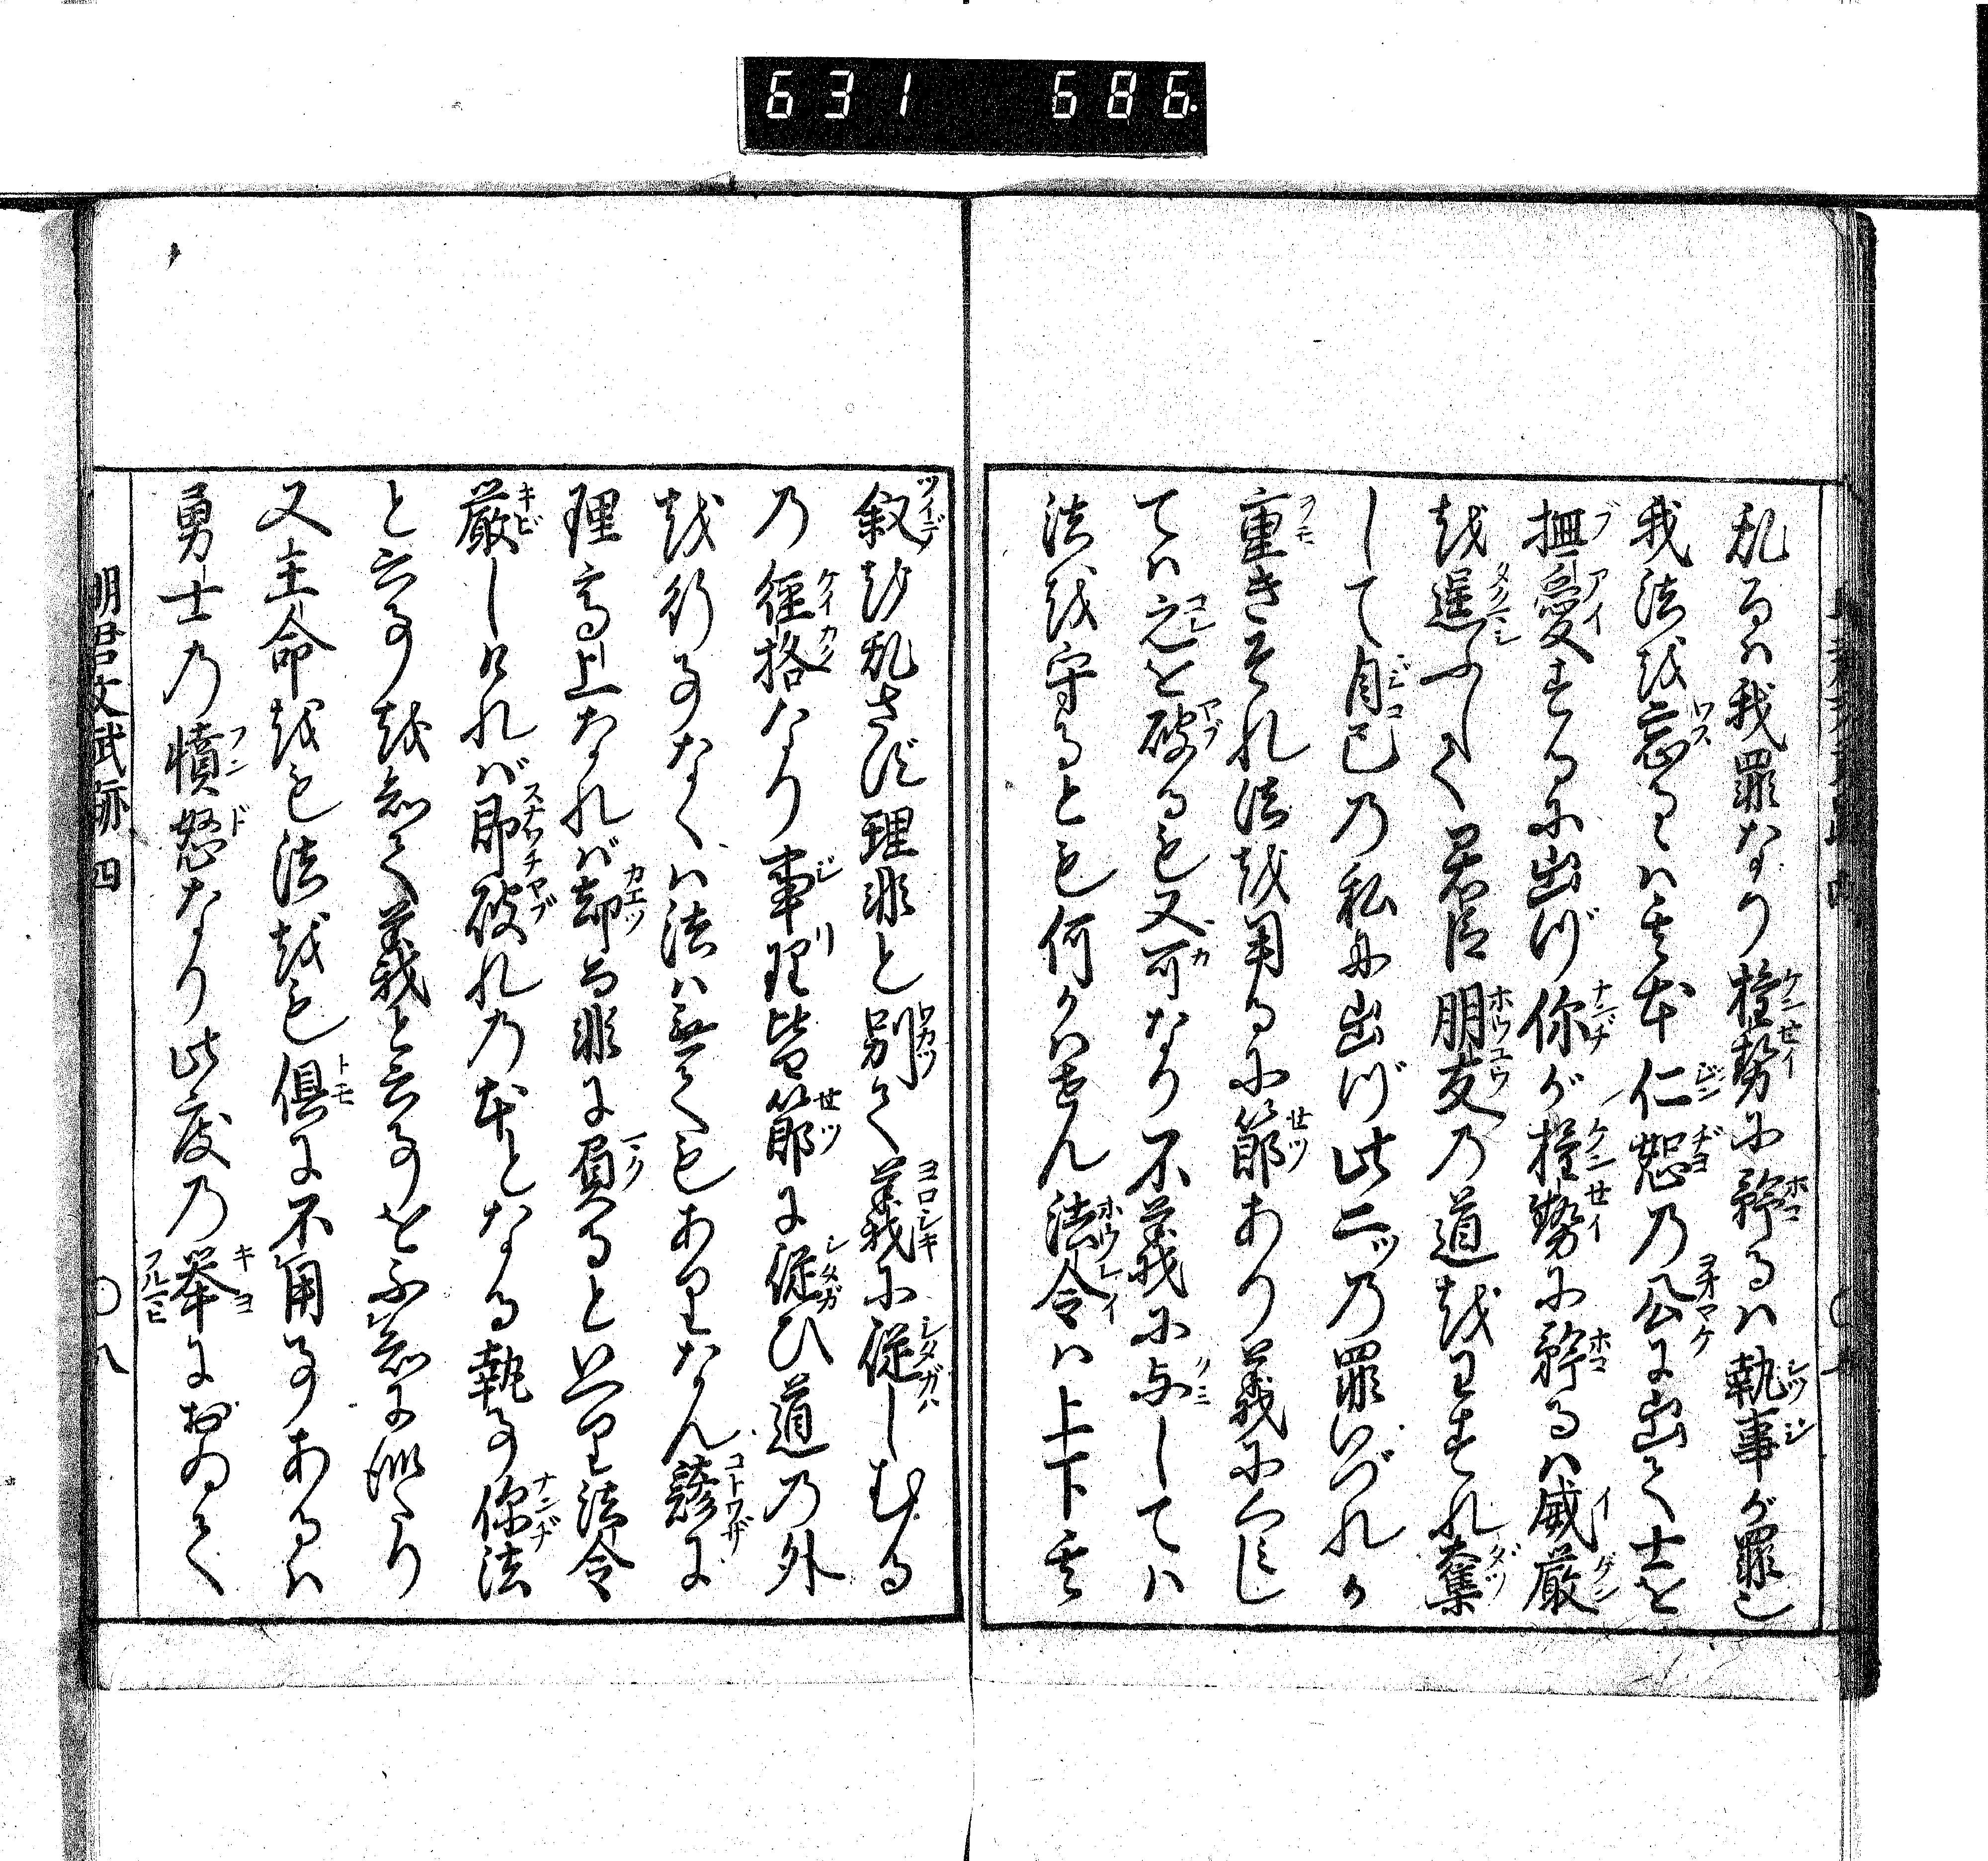 631 686
乱るハ我罪なり権勢に誇るハ執事が罪也
我法を忘るゝハ其本仁恕の公に出て士を
撫愛するに出づ你が権勢に誇るハ威厳
を逞ふして君臣朋友の道をわすれ奪
して自己の私に出づ此二ツの罪いづれか
重きそれ法を用るに節あり義に
てハ之を破るも又可なり不義に与してハ
法を守るとも何かハせん法令ハ上下其
叙を乱さず理非を別て義に従しむる
の径格なり事理皆節に従ひ道の外
を行事なくハ法ハ無てもありなん諺に
理高上なれバ却而非に負ると
厳しけれバ即破れの本となる執事你法
と云事を知て義と云事を不知に似たり
又主命をも法をも倶に不用事あるハ
勇士の憤怒なり此度の挙におゐて
明君文武跡 四 〇八